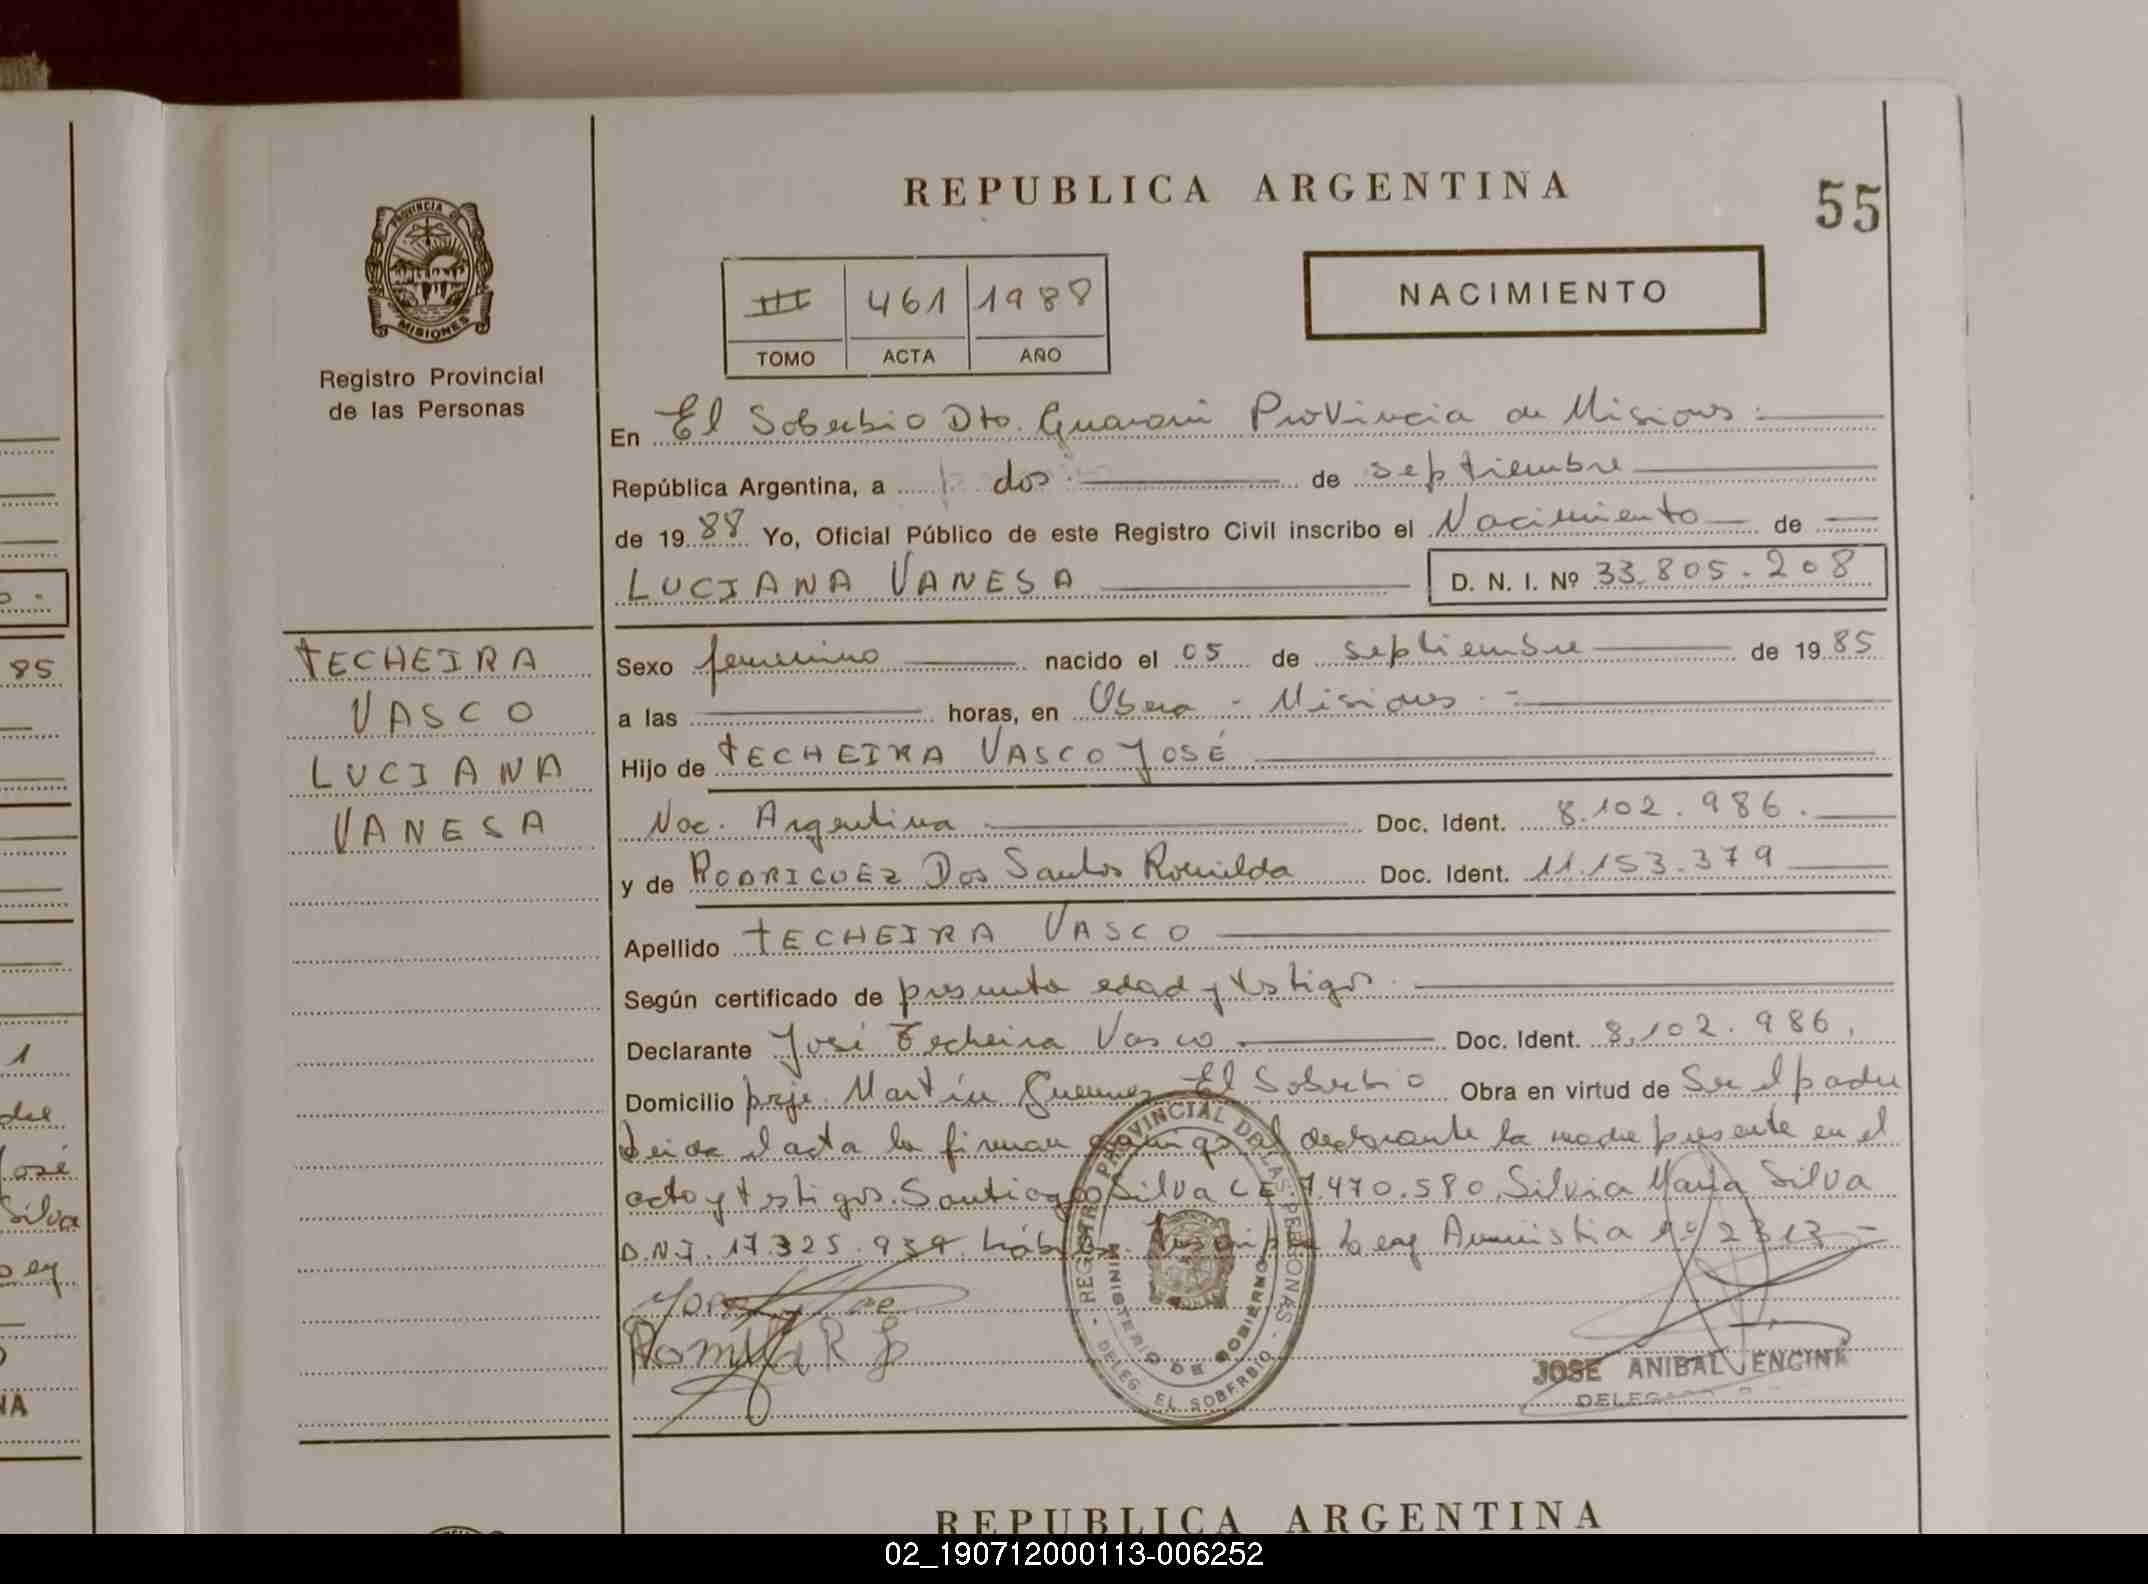 REPUBLICA ARGENTINA
55
PROVINCIA DE
MISIONES
Registro Provincial
de las Personas
III 461 1988
TOMO ACTA AÑO
NACIMIENTO
En El Soberbio Dto. Guarani Provincia de Misiones
República Argentina, a dos de septiembre
de 19 88 Yo, Oficial Público de este Registro Civil inscribo el Nacimiento de
LUCIANA VANESA D. N. I. Nº 33.805.208
TECHEIRA
VASCO
LUCIANA
VANESA
Sexo femenino nacido el 05 de septiembre de 19 85
a las horas, en Obera - Misiones
Hijo de TECHEIRA VASCO JOSÉ
Nac. Argentina Doc. Ident. 8.102.986.
y de RODRIGUEZ Dos Santos Romilda Doc. Ident. 11.153.379
Apellido TECHEIRA VASCO
Según certificado de presunta edad y testigos
Declarante José Techeira Vasco Doc. Ident. 8.102.986.
Domicilio prje. Martín Guemes El Soberbio Obra en virtud de Ser el padre
Leida el acta la firman conmigo el declarante la madre presente en el
acto y testigos. Santiago Silva C.E. 7.470.580 Silvia Maria Silva
D.N.I. 17.325.939 Ley Amnistia Nº 2313
REGISTRO PROVINCIAL DE LAS PERSONAS
MINISTERIO DE GOBIERNO
DELEG. EL SOBERBIO
JOSE ANIBAL ENCINA
REPUBLICA ARGENTINA
85
1
José
Silva
02_190712000113-006252